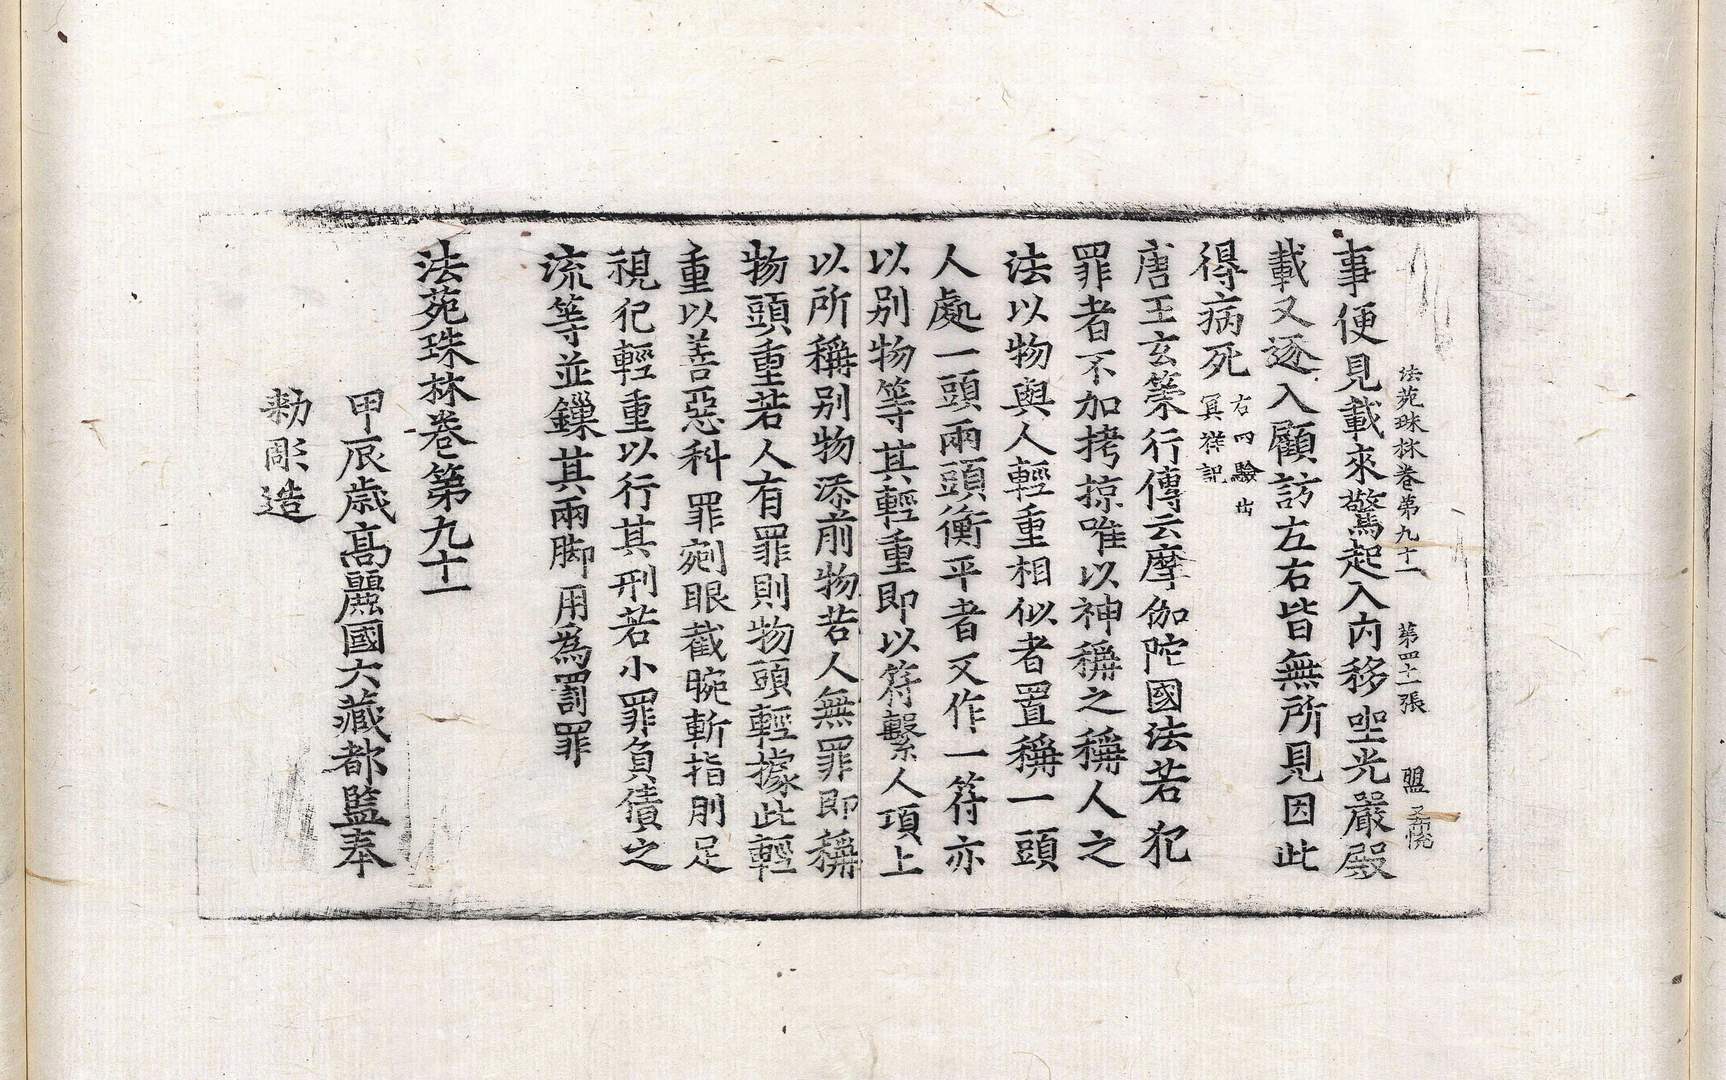 法苑珠林卷第九十一　第四十一張　盟
事便見載來驚起入內移坐光嚴殿
載又逐入顧訪左右皆無所見因此
得病死右四驗出冥祥記
唐王玄策行傳云摩伽陀國法若犯
罪者不加拷掠唯以神稱之稱人之
法以物與人輕重相似者置稱一頭
人處一頭兩頭衡平者又作一符亦
以別物等其輕重即以符繫人項上
以所稱別物添前物若人無罪即稱
物頭重若人有罪則物頭輕據此輕
重以善惡科罪剜眼截腕斬指刖足
視犯輕重以行其刑若小罪負債之
流等並鏁其兩脚用為罰罪
法苑珠林卷第九十一
甲辰歲高麗國大藏都監奉
勑彫造